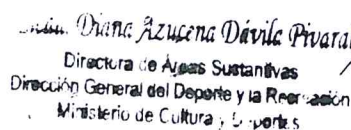 Diana Azucena Dávila Pivaral
Directora de Áreas Sustantivas
Dirección General del Deporte y la Recreación
Ministerio de Cultura y Deportes